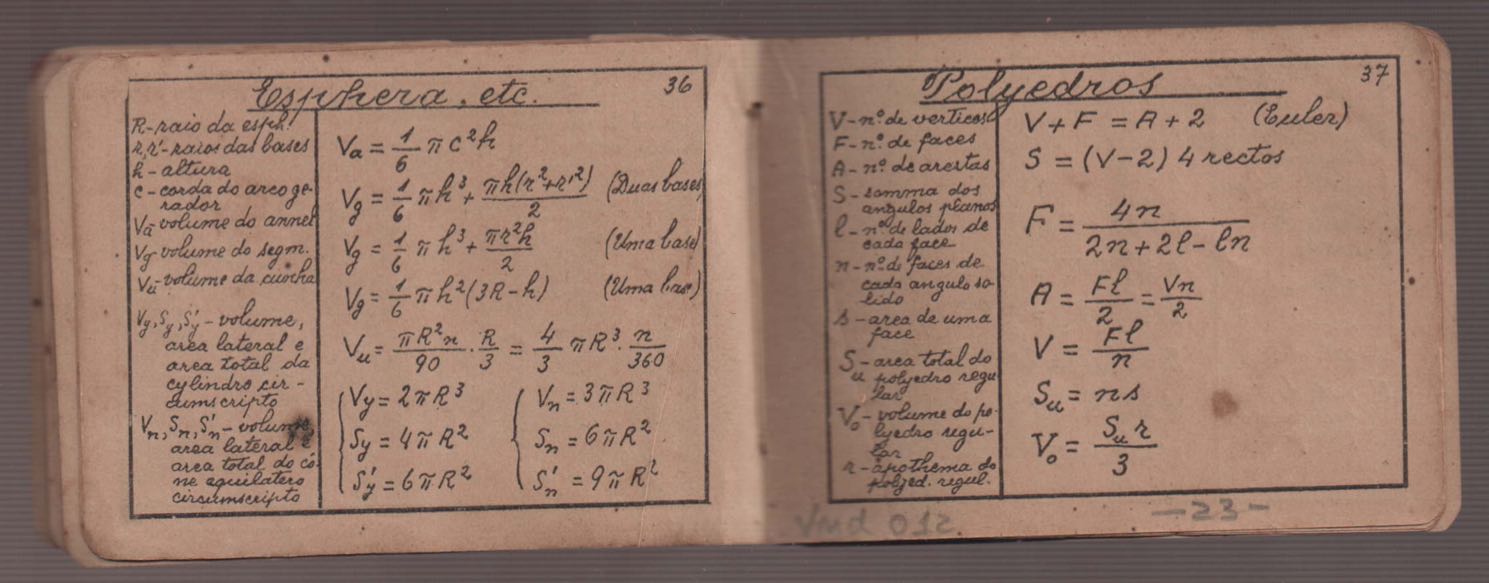 Esphera, etc. 36
R-raio da esph.
r, r'-raios das bases
h-altura
c-corda do arco ge-
rador
Va-volume do annel
Vg-volume do segm.
Vu-volume da cunha
Vy, Sy, S'y-volume,
area lateral e
area total da
cylindro cir-
cumscripto
Vn, Sn, S'n-volume,
area lateral e
area total do cô-
ne equilatero
circumscripto
Va = 1/6 π c² h
Vg = 1/6 π h³ + πh(r²+r'²)/2 (Duas bases)
Vg = 1/6 π h³ + πr²h/2 (Uma base)
Vg = 1/6 π h² (3R-h) (Uma base)
Vu = πR²n/90 · R/3 = 4/3 πR³ · n/360
Vy = 2πR³ Vn = 3πR³
Sy = 4πR² Sn = 6πR²
S'y = 6πR² S'n = 9πR²
Polyedros 37
V-nº de vertices
F-nº de faces
A-nº de arestas
S-somma dos
angulos planos
l-nº de lados de
cada face
n-nº de faces de
cada angulo so-
lido
s-area de uma
face
Su-area total do
polyedro regu-
lar
Vo-volume do po-
lyedro regu-
lar
r-apothema do
polyed. regul.
V + F = A + 2 (Euler)
S = (V-2) 4 rectos
F = 4n/(2n + 2l - ln)
A = Fl/2 = Vn/2
V = Fl/n
Su = ns
Vo = Su r/3
Vmd 012
-23-